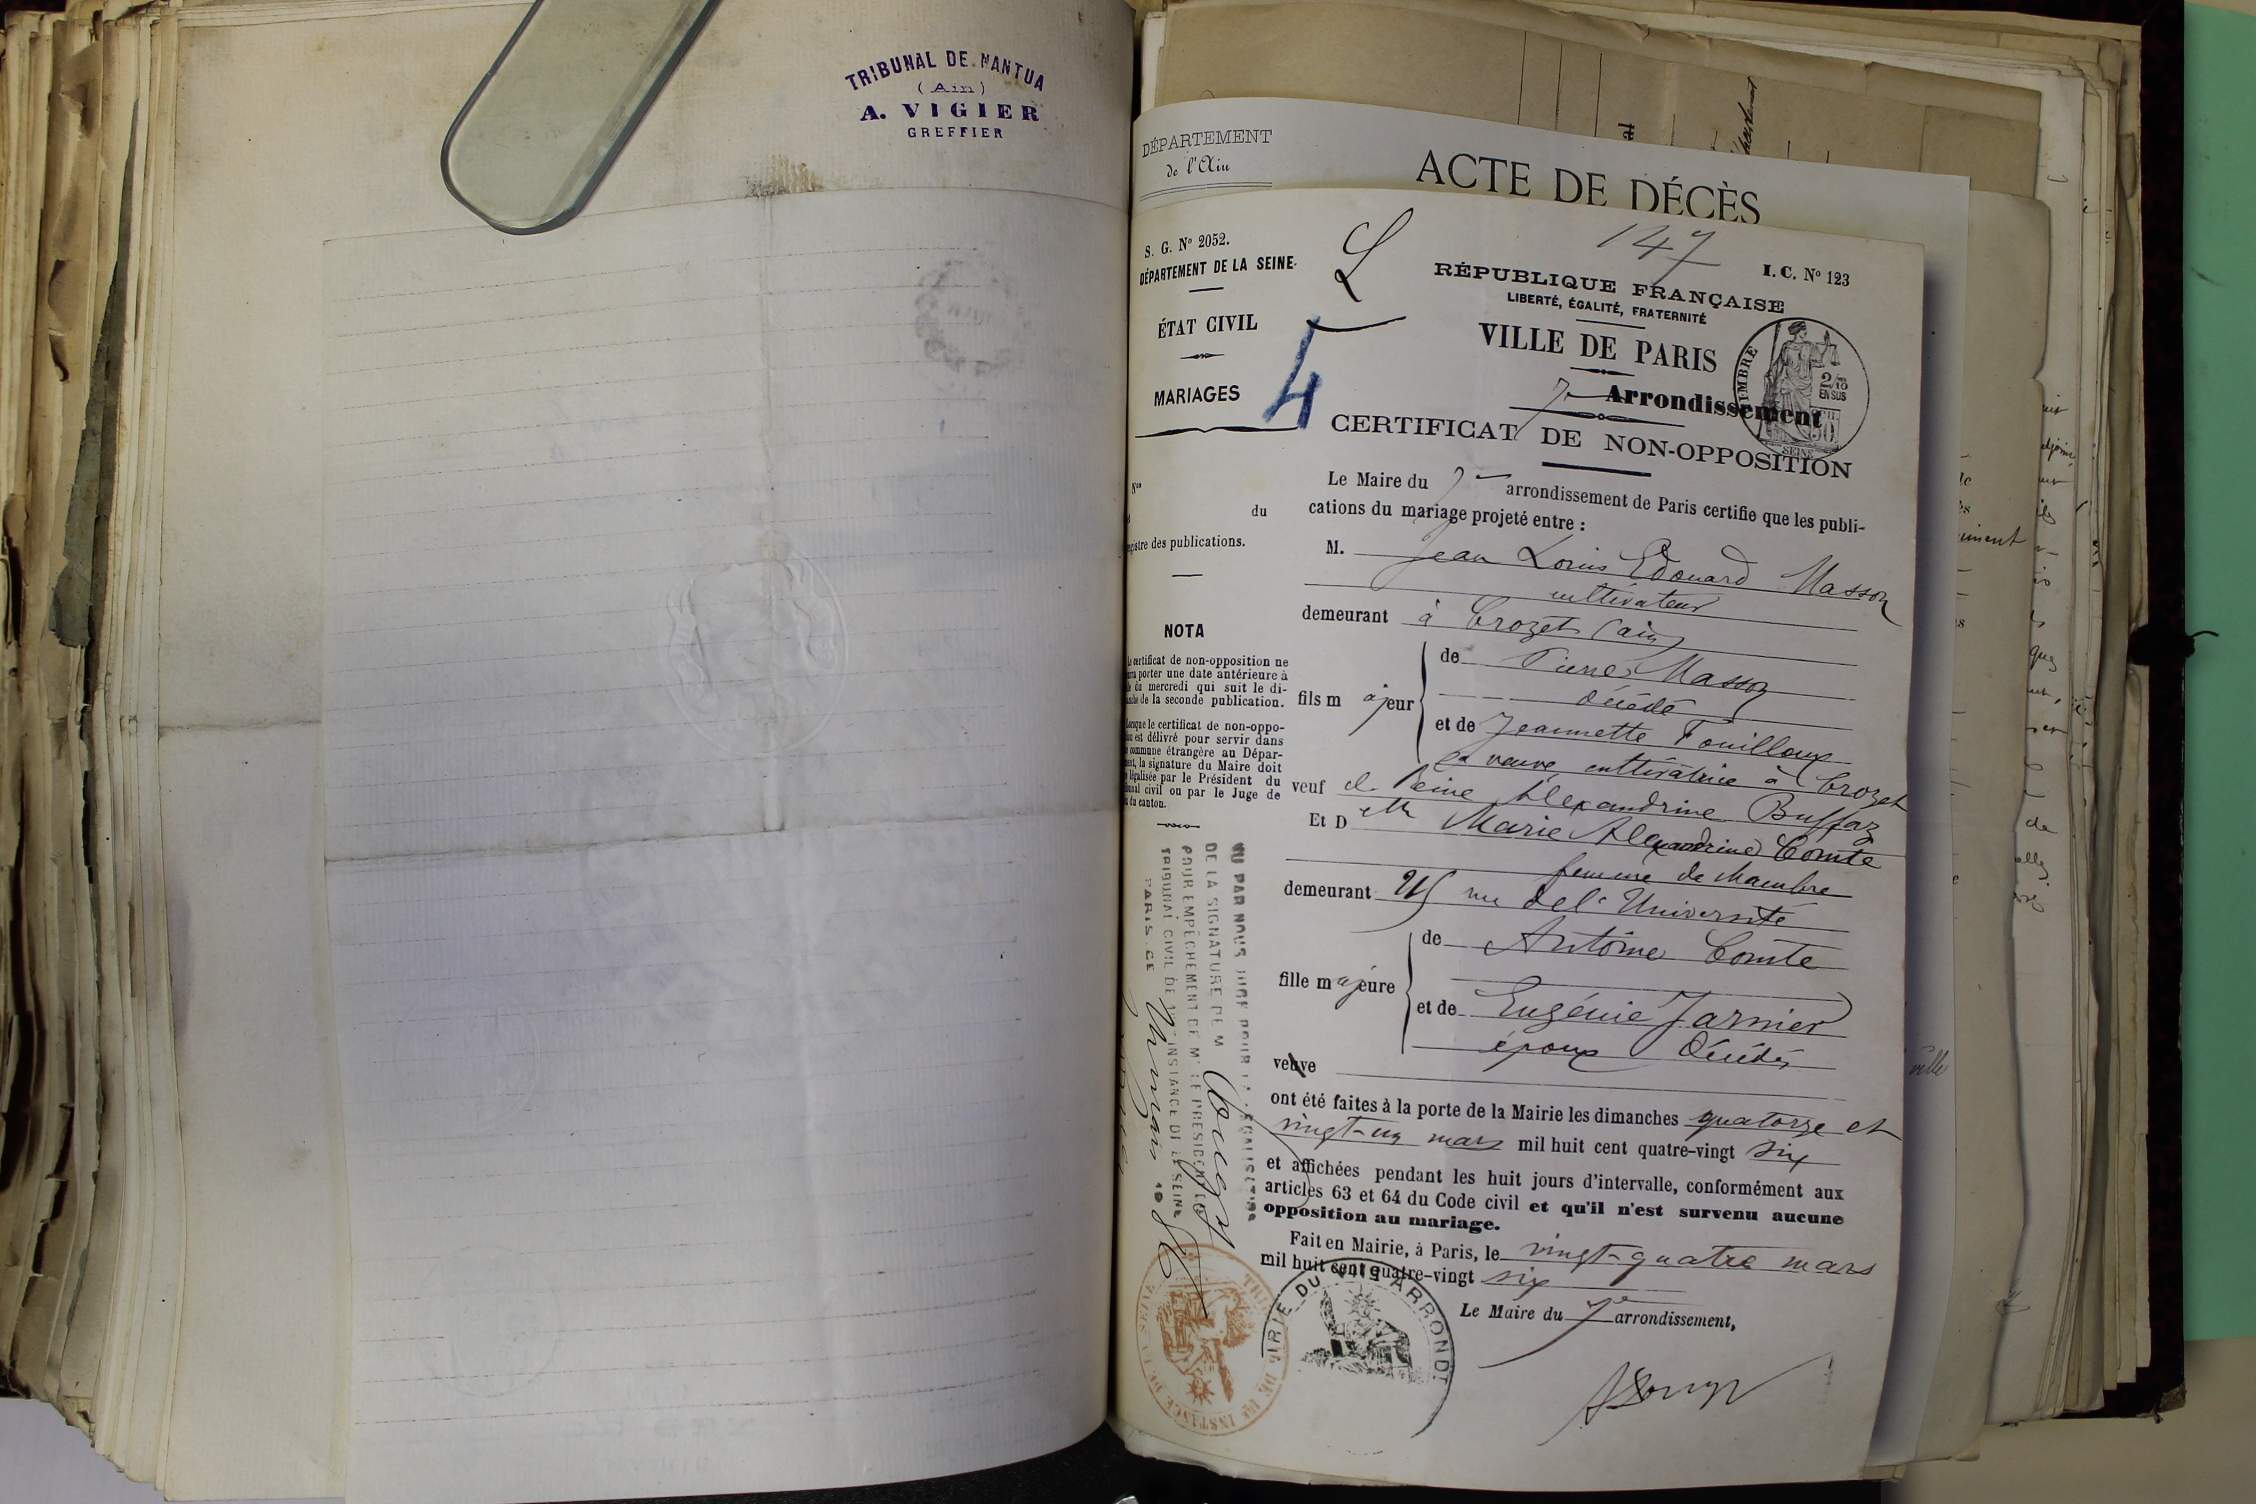 TRIBUNAL DE NANTUA
(Ain)
A. VIGIER
GREFFIER
DÉPARTEMENT
de l'Ain
ACTE DE DÉCÈS
147
S. G. No 2052.
I. C. No 123
DÉPARTEMENT DE LA SEINE
ÉTAT CIVIL
MARIAGES
4
RÉPUBLIQUE FRANÇAISE
LIBERTÉ, ÉGALITÉ, FRATERNITÉ
VILLE DE PARIS
7e Arrondissement
TIMBRE
2/10
EN SUS
SEINE
CERTIFICAT DE NON-OPPOSITION
Nos
du
registre des publications.
NOTA
Le certificat de non-opposition ne
porter une date antérieure à
du mercredi qui suit le di-
de la seconde publication.
Lorsque le certificat de non-oppo-
est délivré pour servir dans
commune étrangère au Dépar-
la signature du Maire doit
légalisée par le Président du
civil ou par le Juge de
du canton.
Le Maire du 7e arrondissement de Paris certifie que les publi-
cations du mariage projeté entre :
M. Jean Louis Edouard Masson
cultivateur
demeurant à Crozet (ain)
fils majeur
de Pierre Masson
décédé
et de Jeannette Fouilloux
sa veuve cultivatrice à Crozet
veuf de Reine Alexandrine Buffaz
Et D elle Marie Alexandrine Comte
femme de chambre
demeurant rue de l'Université
fille majeure
de Antoine Comte
et de Eugénie Jarnier
époux décédés
veuve
ont été faites à la porte de la Mairie les dimanches quatorze et
vingt-un mars mil huit cent quatre-vingt six
et affichées pendant les huit jours d'intervalle, conformément aux
articles 63 et 64 du Code civil et qu'il n'est survenu aucune
opposition au mariage.
Fait en Mairie, à Paris, le vingt-quatre mars
mil huit cent quatre-vingt six
Le Maire du 7e arrondissement,
VU PAR NOUS JUGE POUR LÉGALISATION
DE LA SIGNATURE DE M
POUR EMPÊCHEMENT DE M. LE PRÉSIDENT DU
TRIBUNAL CIVIL DE 1RE INSTANCE DE LA SEINE
PARIS, CE
MAIRIE DU VIIE ARRONDT
TRIBAL DE 1RE INSTANCE DE LA SEINE